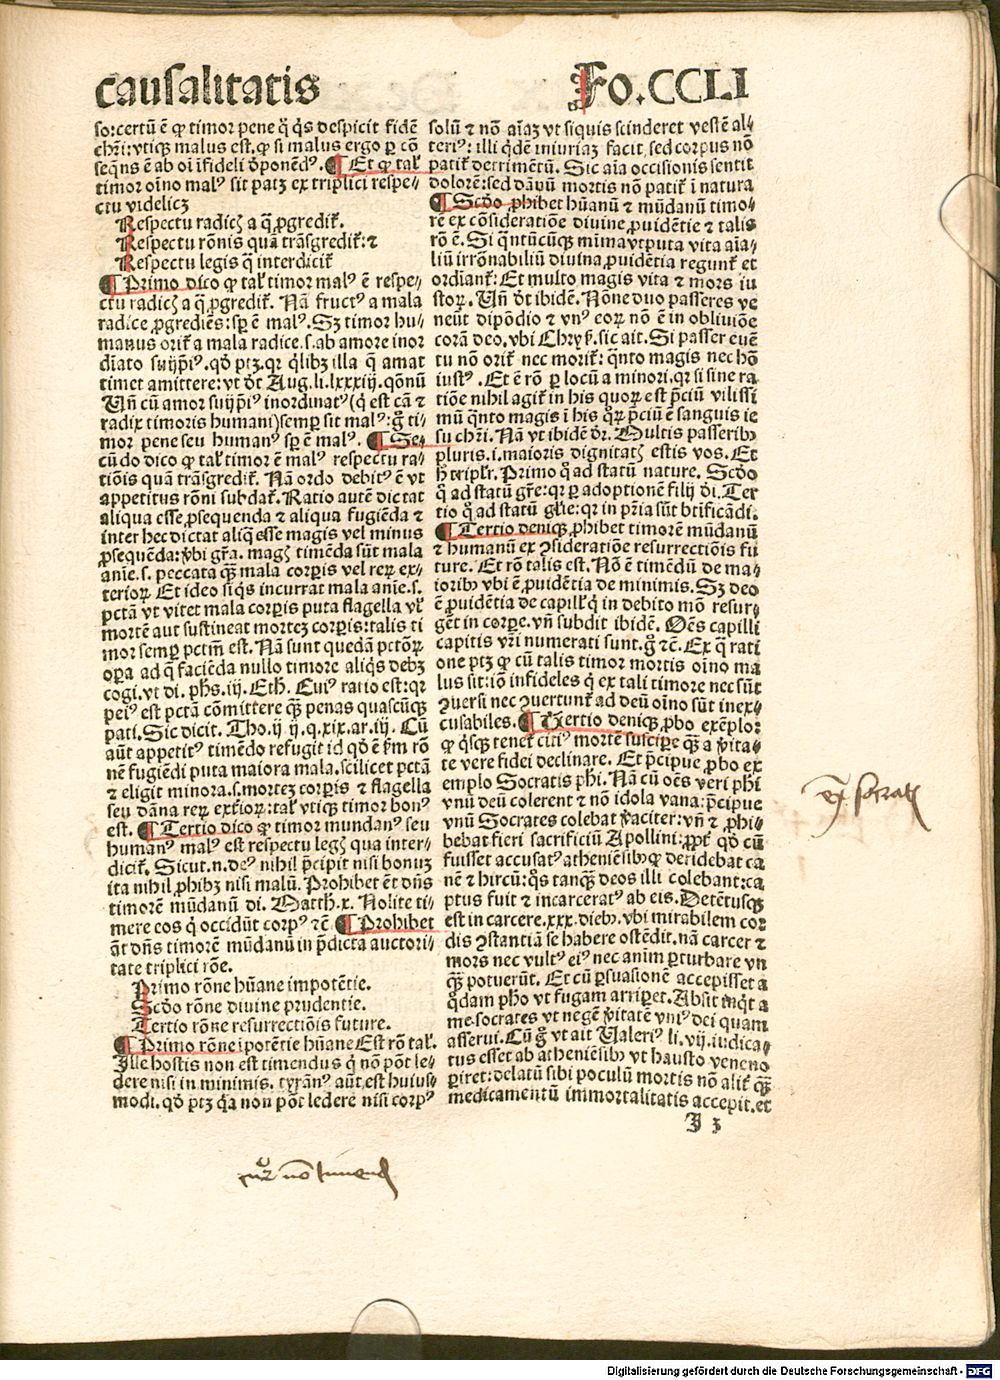 causalitatis
Fo.CCLI
so:certũ ē ꝙ timor pene q̃ q̃s despicit fidē
chři:vtiqꝫ malus est,ꝙ si malus ergo ꝑ cō
seq̃ns ē ab oi ifideli dɐponēdꝰ. ¶ Et ꝙ tal'
timor oīno malꝰ sit patꝫ ex triplici respe⸗
ctu videlicꝫ
Respectu radicꝭ a q̃ ꝓgredit᷑.
Respectu rōnis quã trãsgredit᷑: ⁊
Respectu legis q̃ interdicit᷑
¶ Primo dico ꝙ tal' timor malꝰ ē respe⸗
ctu radicꝭ a q̃ ꝓgredit᷑. Nã fructꝰ a mala
radice ꝓgrediēs: sꝑ ē malꝰ. Sꝫ timor hu⸗
manus orit᷑ a mala radice.s.ab amore inor
dīato suijp̄iꝰ. qď ptꝫ.qꝛ q̃libꝫ illa q̃ amat
timet amittere: vt dɐt Aug.li.lxxxiij.qōnũ
Uñ cũ amor suijp̄iꝰ inordinatꝰ (q̃ est cã ⁊
radix timoris humani)semꝑ sit malꝰ: g̃ ti⸗
mor pene seu humanꝰ sꝑ ē malꝰ. ¶ Se⸗
cũdo dico ꝙ tal' timor ē malꝰ respectu ra⸗
tiōis quã trãsgredit᷑. Nã ordo debitꝰ ē vt
appetitus rōni subdat᷑. Ratio autē dictat
aliqua esse ꝓsequenda ⁊ aliqua fugiēda ⁊
inter hec dictat aliq̃ esse magis vel minus
ꝓsequēda: ṽbi gr̃a. magꝭ timēda sũt mala
anīe.s. peccata qꝫ̃ mala corꝑis vel reꝝ ex⸗
terioꝝ. Et ideo siq̃s incurrat mala anīe.s.
pctã vt vitet mala corꝑis puta flagella vl'
mortē aut sustineat morteꝫ corꝑis: talis ti
mor semꝑ pctm̃ est. Nã sunt quedã pctōꝝ
oꝑa ad q̃ faciēda nullo timore aliq̃s debꝫ
cogi.vt di. phs.iij. Eth. Cuiꝰ ratio est: qꝛ
peiꝰ est pctã cōmittere qꝫ̃ penas quascũqꝫ
pati. Sic dicit. Tho.ij ij.q.xix.ar.iij. Cũ
aũt appetitꝰ timēdo refugit id qď ē ẜm rō
nē fugiēdi puta maiora mala.scilicet pctã
⁊ eligit minora.s.morteꝫ corꝑis ⁊ flagella
seu dãna reꝝ ext̃ioꝝ: tal' vtiqꝫ timor bonꝰ
est. ¶ Tertio dico ꝙ timor mundanꝰ seu
humanꝰ malꝰ est respectu legꝭ qua inter⸗
dicit᷑. Sicut.n.deꝰ nihil p̃cipit nisi bonuꝫ
ita nihil ꝓhibꝫ nisi malũ. Prohibet ēt dñs
timorē mũdanũ di. Matth.x. Nolite ti⸗
mere eos q̃ occidũt corpꝰ ⁊c̄ ¶ Prohibet
āt dñs timorē mũdanũ in p̃dicta auctori⸗
tate triplici rōe.
Primo rōne hũane impotētie.
Scďo rōne diuine prudentie.
Tertio rōne resurrectiōis future.
¶ Primo rōne ipotētie hũane Est rō tal'.
Ille hostis non est timendus q̃ nō pōt le⸗
dere nisi in minimis. tyrãnꝰ aũt est huius⸗
modi. qď ptꝫ q̃a non pōt ledere nisi corpꝰ
solũ ⁊ nō aīaꝫ vt siquis scinderet vestē al⸗
teriꝰ: illi q̃dē iniuriaꝫ facit sed corpus nō
patit᷑ detrimētũ. Sic aīa occisionis sentit
dolorē: sed dãnũ mortis nō patit᷑ ī natura
¶ Scďo ꝓhibet hũanũ ⁊ mũdanũ timo⸗
re ex cōsideratiōe diuine ꝓuidētie ⁊ talis
rō ē. Si q̃ntũcũqꝫ mīma vtputa vita aīa⸗
liũ irrōnabiliũ diuina ꝓuidētia regunt᷑ et
ordiant᷑: Et multo magis vita ⁊ mors iu
stoꝝ. Uñ dɐt ibidē. Nōne duo passeres ve
neũt dipōdio ⁊ vnꝰ eoꝝ nō ē in obliuiōe
corã deo.vbi Chrys. sic ait. Si passer euē
tu nō orit᷑ nec morit᷑: q̃nto magis nec hō
iustꝰ. Et ē rō ꝑ locũ a minori.qꝛ si sine ra
tiōe nihil agit᷑ in his quoꝝ est p̃ciũ vilissi
mũ q̃nto magis ī his q̃oꝝ p̃ciũ ē sanguis ie
su chři. Nã vt ibidē dɐr. Multis passeribꝰ
pluris.i.maioris dignitatꝭ estis vos. Et
h̃ triplr̃. Primo q̃ ad statũ nature. Scďo
q̃ ad statũ gr̃e: qꝛ ꝑ adoptionē filij di. Ter
tio q̃ ad statũ gl̃ie: qꝛ in pr̃ia sũt btificãdi.
¶ Tertio deniqꝫ ꝓhibet timorē mũdanũ
⁊ humanũ ex ↄsideratiōe resurrectiōis fu
ture. Et rō talis est. Nō ē timēdũ de ma⸗
ioribꝰ vbi ē ꝓuidētia de minimis. Sꝫ deo
ē ꝓuidētia de capill' q̃ in debito mō resur⸗
gēt in corꝑe.vñ subdit ibidē. Oēs capilli
capitis vr̃i numerati sunt.g̃ ⁊c̄. Ex q̃ rati
one ptꝫ ꝙ cũ talis timor mortis oīno ma
lus sit: iō infideles q̃ ex tali timore nec sũt
ↄuersi nec ↄuertunt᷑ ad deũ oīno sũt inex⸗
cusabiles. ¶ Tertio deniqꝫ ꝓbo exēplo:
ꝙ q̃sqꝫ tenet᷑ citiꝰ mortē suscipe qꝫ̃ a ṽita⸗
te vere fidei declinare. Et p̃cipue ꝓbo ex
emplo Socratis phi. Nã cũ oēs veri phi
vnũ deũ colerent ⁊ nō idola vana: p̃cipue
vnũ Socrates colebat ṽaciter: vñ ⁊ ꝓhi⸗
bebat fieri sacrificiũ Apollini: ꝓpt̃ qď cũ
fuisset accusatꝰ atheniēsibꝰ ꝙ deridebat ca
nē ⁊ hircũ: q̃s tanqꝫ̃ deos illi colebant: ca
ptus fuit ⁊ incarceratꝰ ab eis. Detētusqꝫ
est in carcere.xxx.diebꝰ. vbi mirabilem cor
dis ↄstantiã se habere ostēdit. nã carcer ⁊
mors nec vultꝰ eiꝰ nec anim̃ ꝑturbare vn
qꝫ̃ potuerũt. Et cũ ꝑsuasionē accepisset a
q̃dam pho vt fugam arriꝑet. Absit inq̃t a
me socrates vt negē ṽitatē vniꝰ dei quam
asserui. Cũ g̃ vt ait Ualeriꝰ li.vij.iudica⸗
tus esset ab atheniēsibꝰ vt hausto veneno
ꝑiret: delatũ sibi poculũ mortis nō alit᷑ qꝫ̃
medicamentũ immortalitatis accepit.et
I 3
socratis
cur nō timend
Digitalisierung gefördert durch die Deutsche Forschungsgemeinschaft - DFG